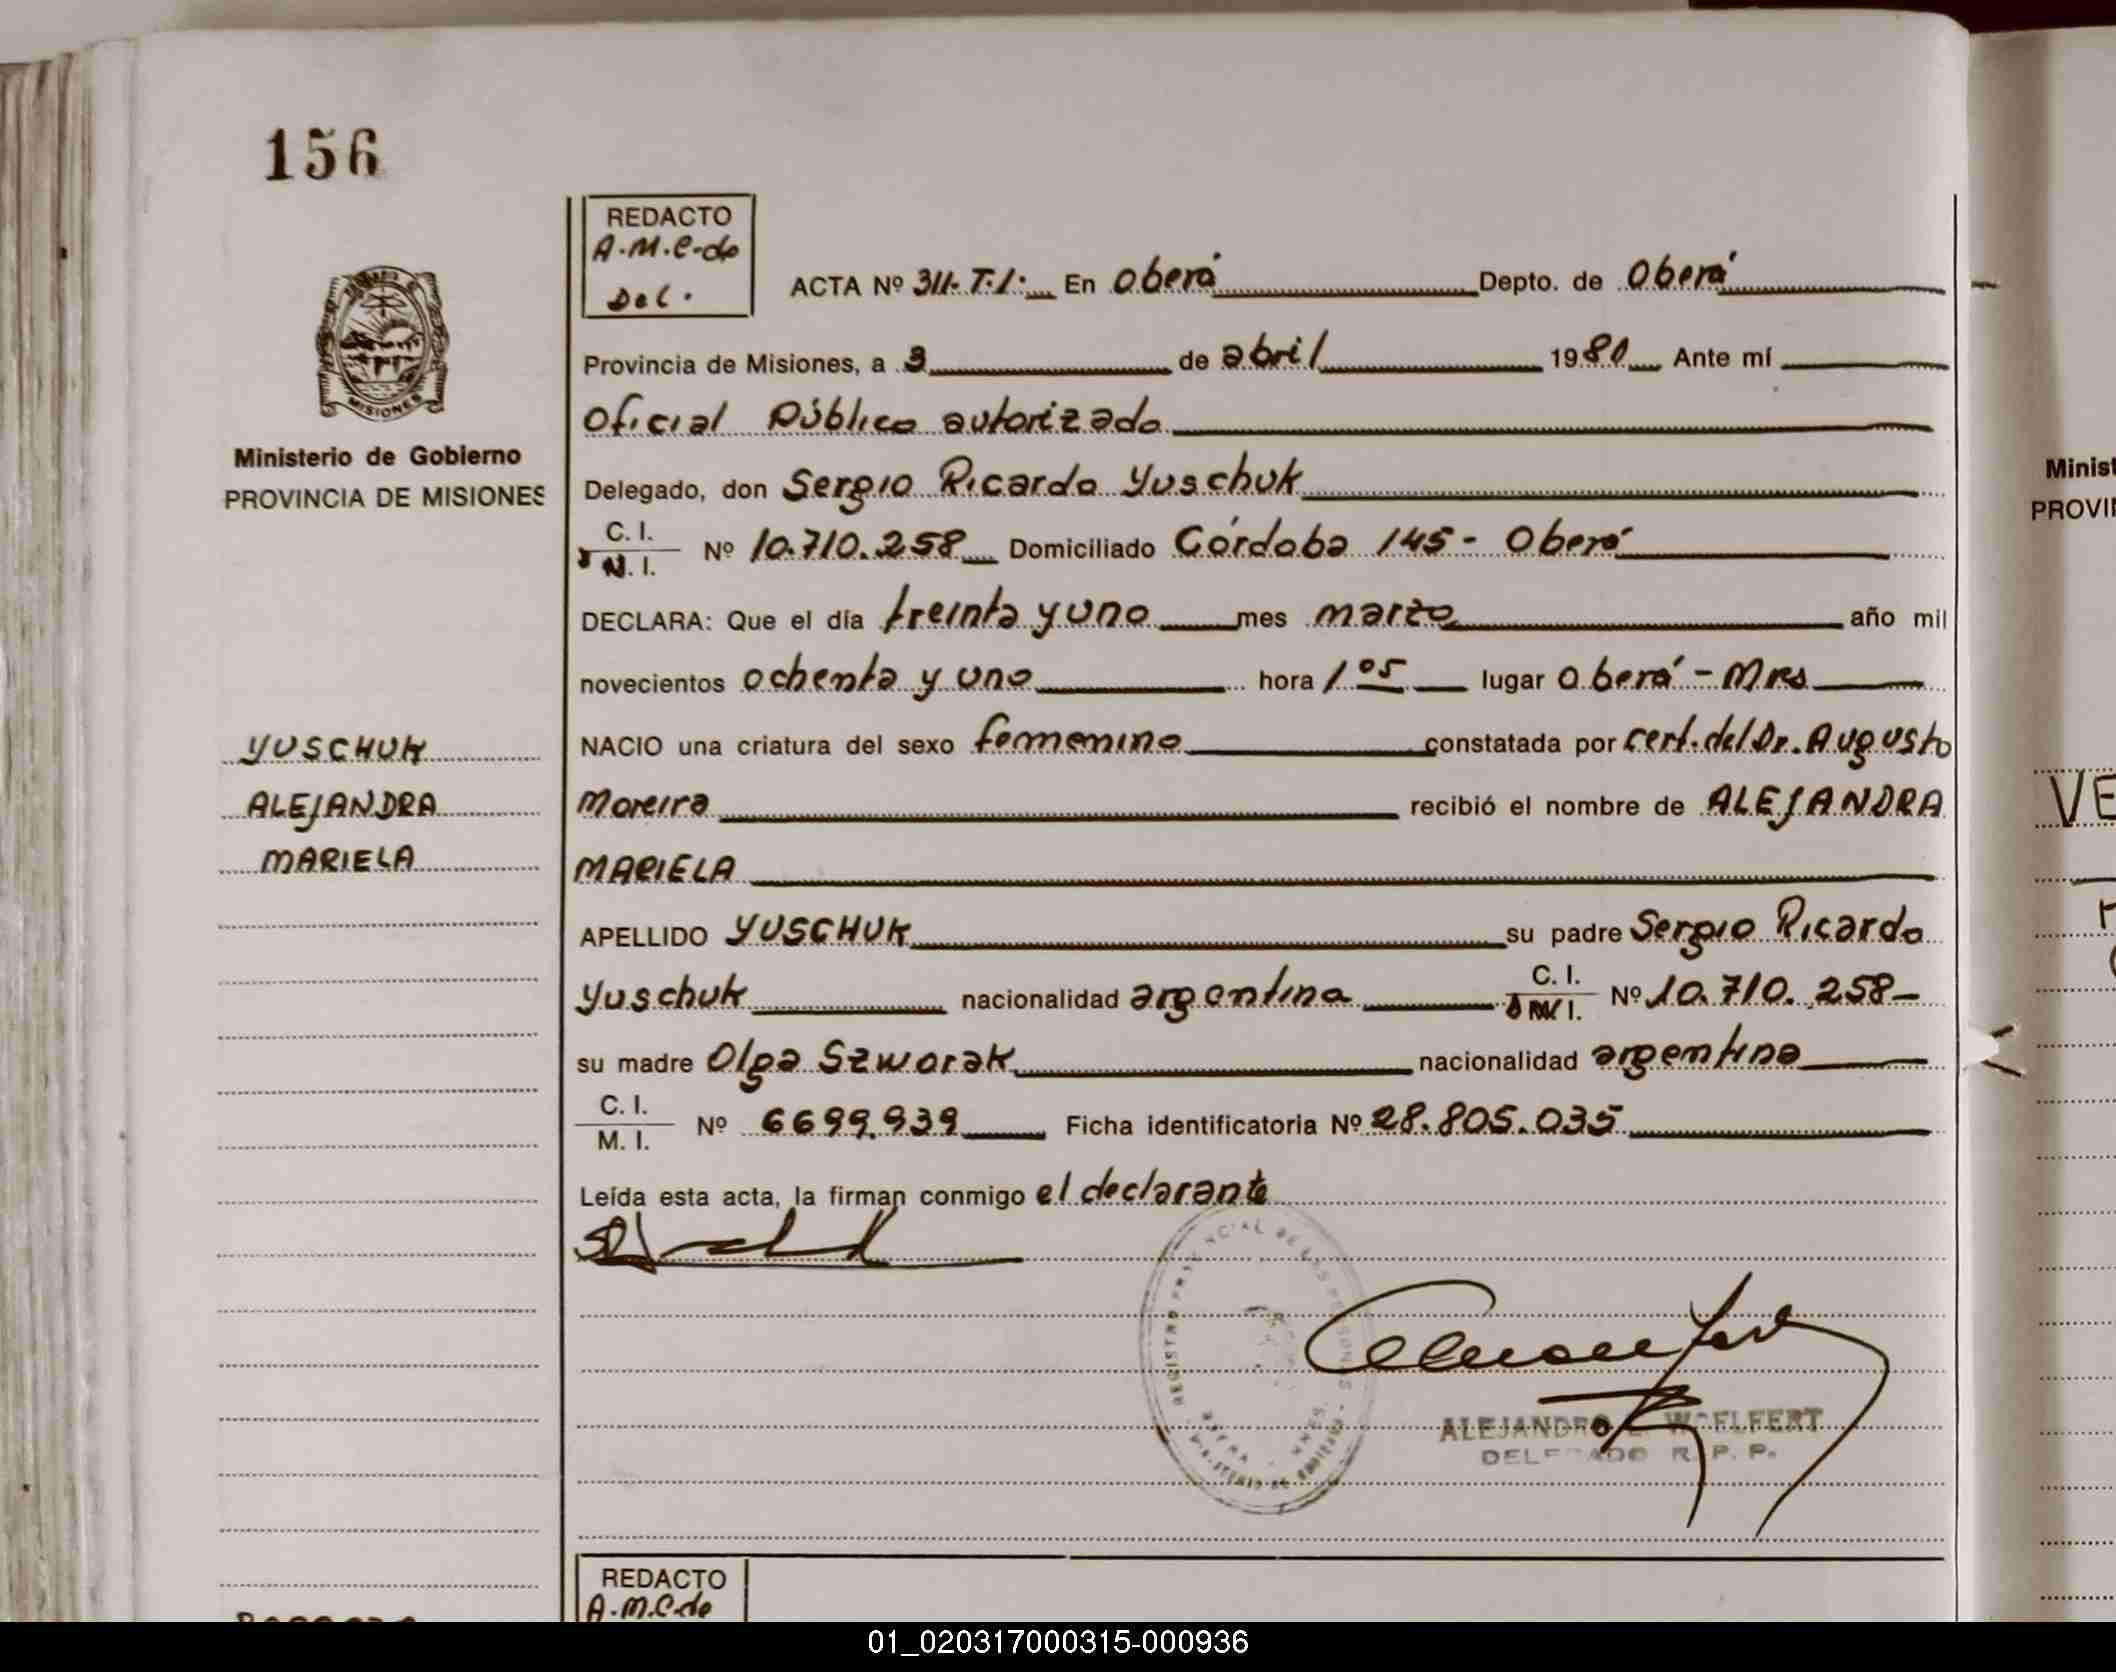 156
MISIONES
Ministerio de Gobierno
PROVINCIA DE MISIONES
YUSCHUK
ALEJANDRA
MARIELA
REDACTO
A.M.C.do
Del.
ACTA Nº 311. T.1. En Oberá Depto. de Oberá
Provincia de Misiones, a 3 de abril 1981 Ante mí
Oficial Público autorizado
Delegado, don Sergio Ricardo Yuschuk
C. I.
N. I. Nº 10.710.258 Domiciliado Córdoba 145 - Oberá
DECLARA: Que el día treinta y uno mes marzo año mil
novecientos ochenta y uno hora 1 05 lugar Oberá - Mnes
NACIO una criatura del sexo femenino constatada por cert. del Dr. Augusto
Moreira recibió el nombre de ALEJANDRA
MARIELA
APELLIDO YUSCHUK su padre Sergio Ricardo
Yuschuk nacionalidad argentina C. I. Nº 10.710.258-
su madre Olga Szworak nacionalidad argentina
C. I.
M. I. Nº 6699.939 Ficha identificatoria Nº 28.805.035
Leída esta acta, la firman conmigo el declarante
REGISTRO PROVINCIAL DE LAS PERSONAS
ALEJANDRO WOELFERT
DELEGADO R. P. P.
REDACTO
A.M.C.do
Minist
PROVIN
VE
01_020317000315-000936